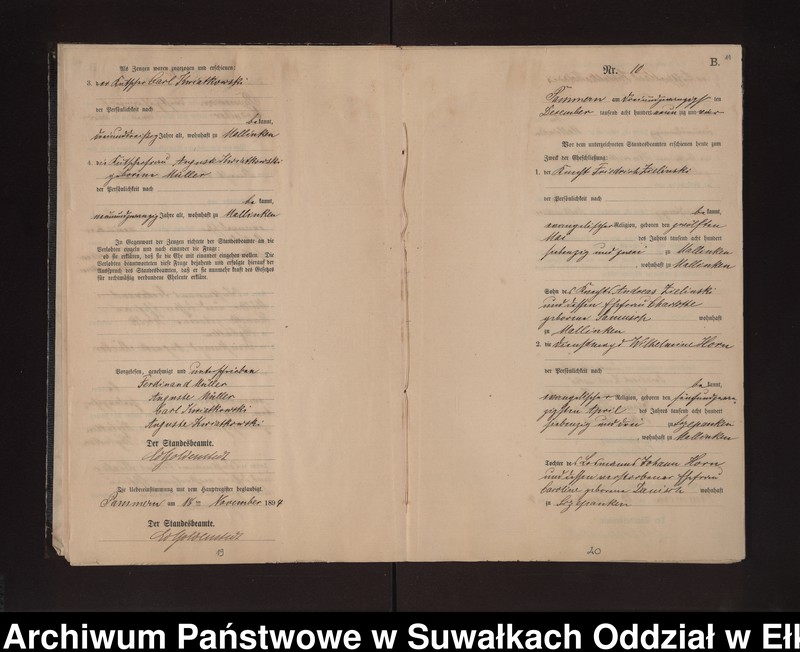 Als Zeugen waren zugezogen und erschienen:
3. der Kutscher Carl Kwiatkowski
der Persönlichkeit nach
be kannt,
dreiunddreißig Jahre alt, wohnhaft zu Mallinken
4. die Kutscherfrau Auguste Kwiatkowski
geborene Müller
der Persönlichkeit nach
be kannt,
neunundzwanzig Jahre alt, wohnhaft zu Mallinken
In Gegenwart der Zeugen richtete der Standesbeamte an die
Verlobten einzeln und nach einander die Frage:
ob sie erklären, daß sie die Ehe mit einander eingehen wollen. Die
Verlobten beantworteten diese Frage bejahend und erfolgte hierauf der
Ausspruch des Standesbeamten, daß er sie nunmehr kraft des Gesetzes
für rechtmäßig verbundene Eheleute erkläre.
Vorgelesen, genehmigt und unterschrieben
Ferdinand Müller
Auguste Müller
Carl Kwiatkowski
Auguste Kwiatkowski
Der Standesbeamte.
Die Uebereinstimmung mit dem Hauptregister beglaubigt
am 18ten November 1894
Der Standesbeamte.
19
B.
Nr. 10.
am dreiundzwanzigsten
Dezember tausend acht hundert neunzig und vier
Vor dem unterzeichneten Standesbeamten erschienen heute zum
Zweck der Eheschließung:
1. der Knecht Friedrich Zielinski
der Persönlichkeit nach
be kannt,
evangelischer Religion, geboren den zwölften
Mai des Jahres tausend acht hundert
siebenzig und zwei zu Mallinken
, wohnhaft zu Mallinken
Sohn des Knechts Andreas Zielinski
und dessen Ehefrau Charlotte
geborene wohnhaft
zu Mallinken
2. die Dienstmagd Wilhelmine Horn
der Persönlichkeit nach
be kannt,
evangelischer Religion, geboren den fünfundzwan-
zigsten April des Jahres tausend acht hundert
siebenzig und drei zu Sczepanken
, wohnhaft zu Mallinken
Tochter des Losmanns Johann Horn
und dessen verstorbener Ehefrau
Caroline geborene wohnhaft
zu Sczepanken
20
Archiwum Państwowe w Suwałkach Oddział w Ełk